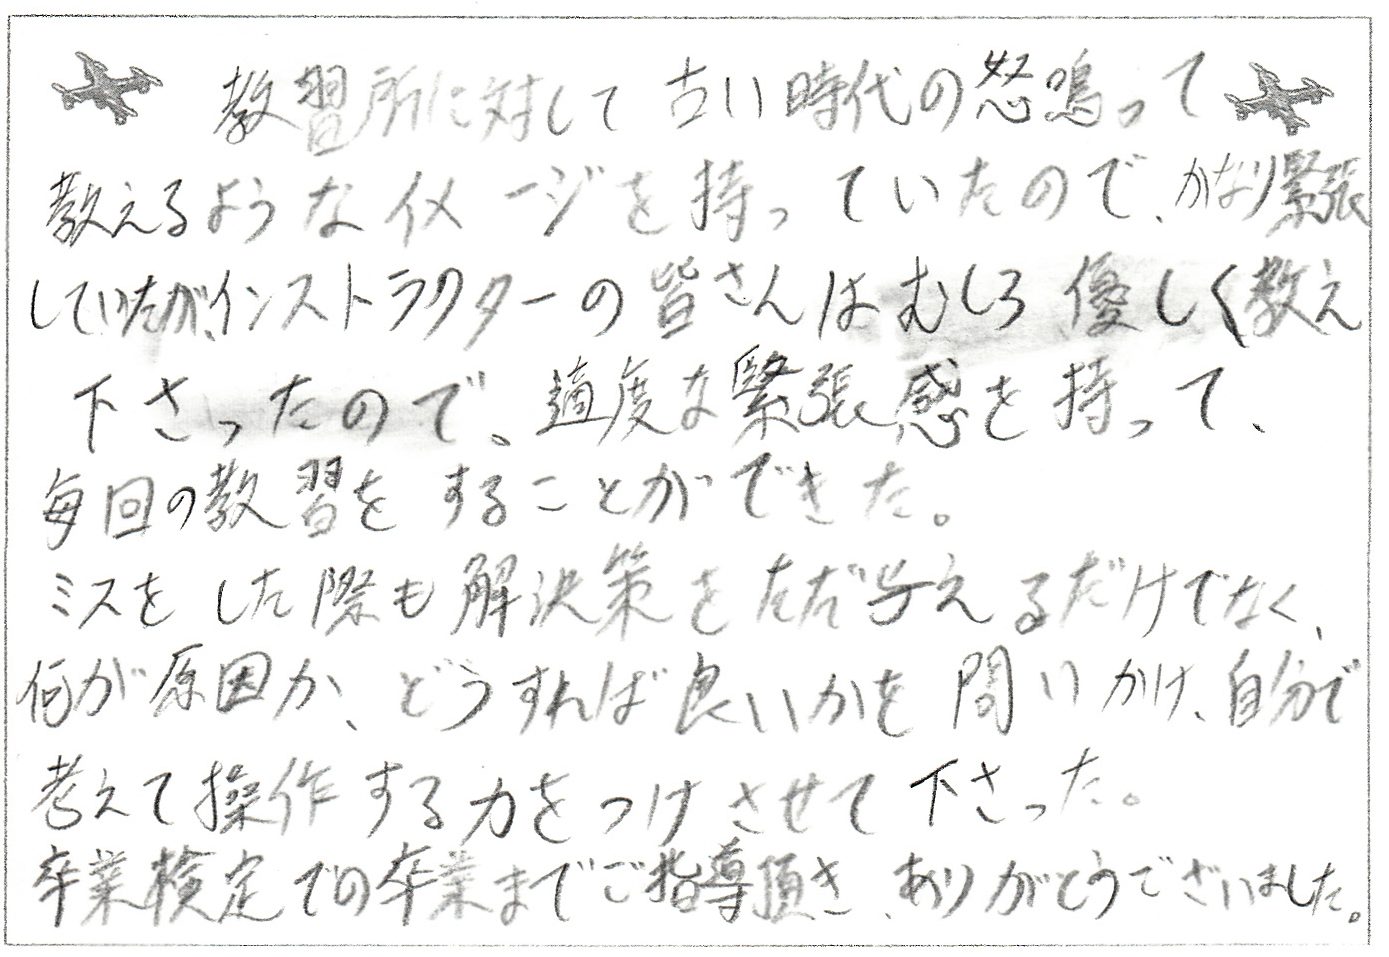 教習所に対して古い時代の怒鳴って
教えるようなイメージを持っていたので、かなり緊張
していたが、インストラクターの皆さんはむしろ優しく教え
下さったので、適度な緊張感を持って、
毎回の教習をすることができた。
ミスをした際も解決策をただ与えるだけでなく、
何が原因か、どうすれば良いかを問いかけ、自分で
考えて操作する力をつけさせて下さった。
卒業検定での卒業までご指導頂き、ありがとうございました。